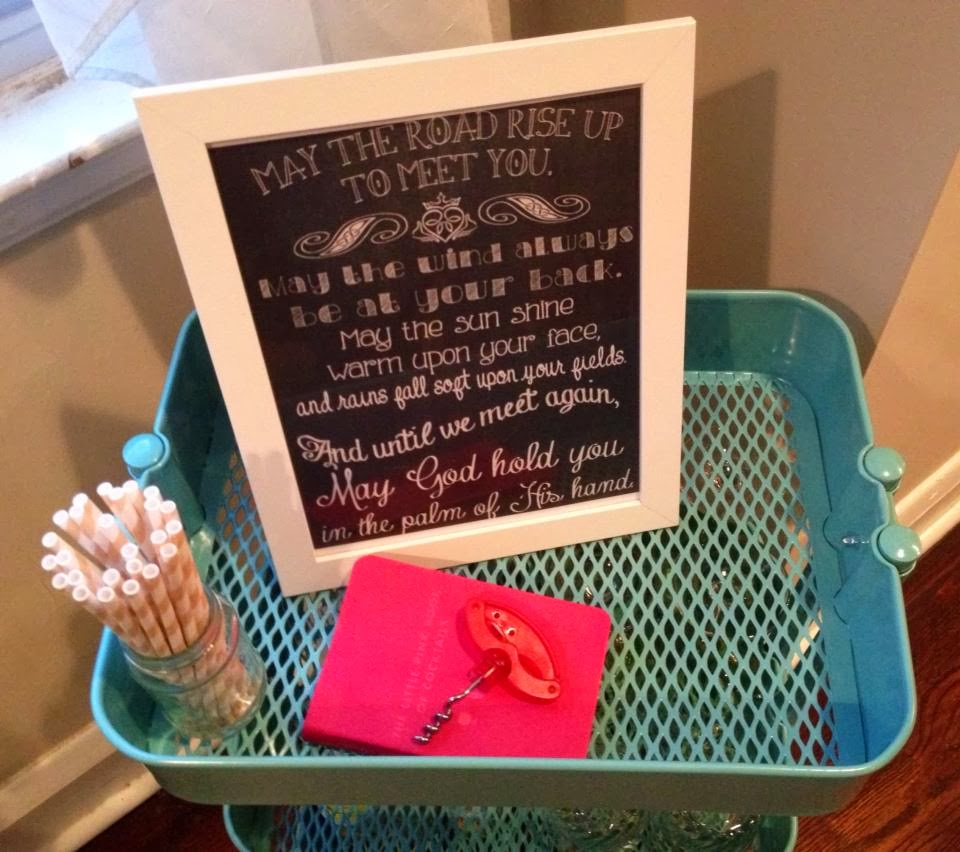 MAY THE ROAD RISE UP
TO MEET YOU.
May the wind always
be at your back.
May the sun shine
warm upon your face,
and rains fall soft upon your fields.
And until we meet again,
May God hold you
in the palm of His hand.
OF COCKTAILS